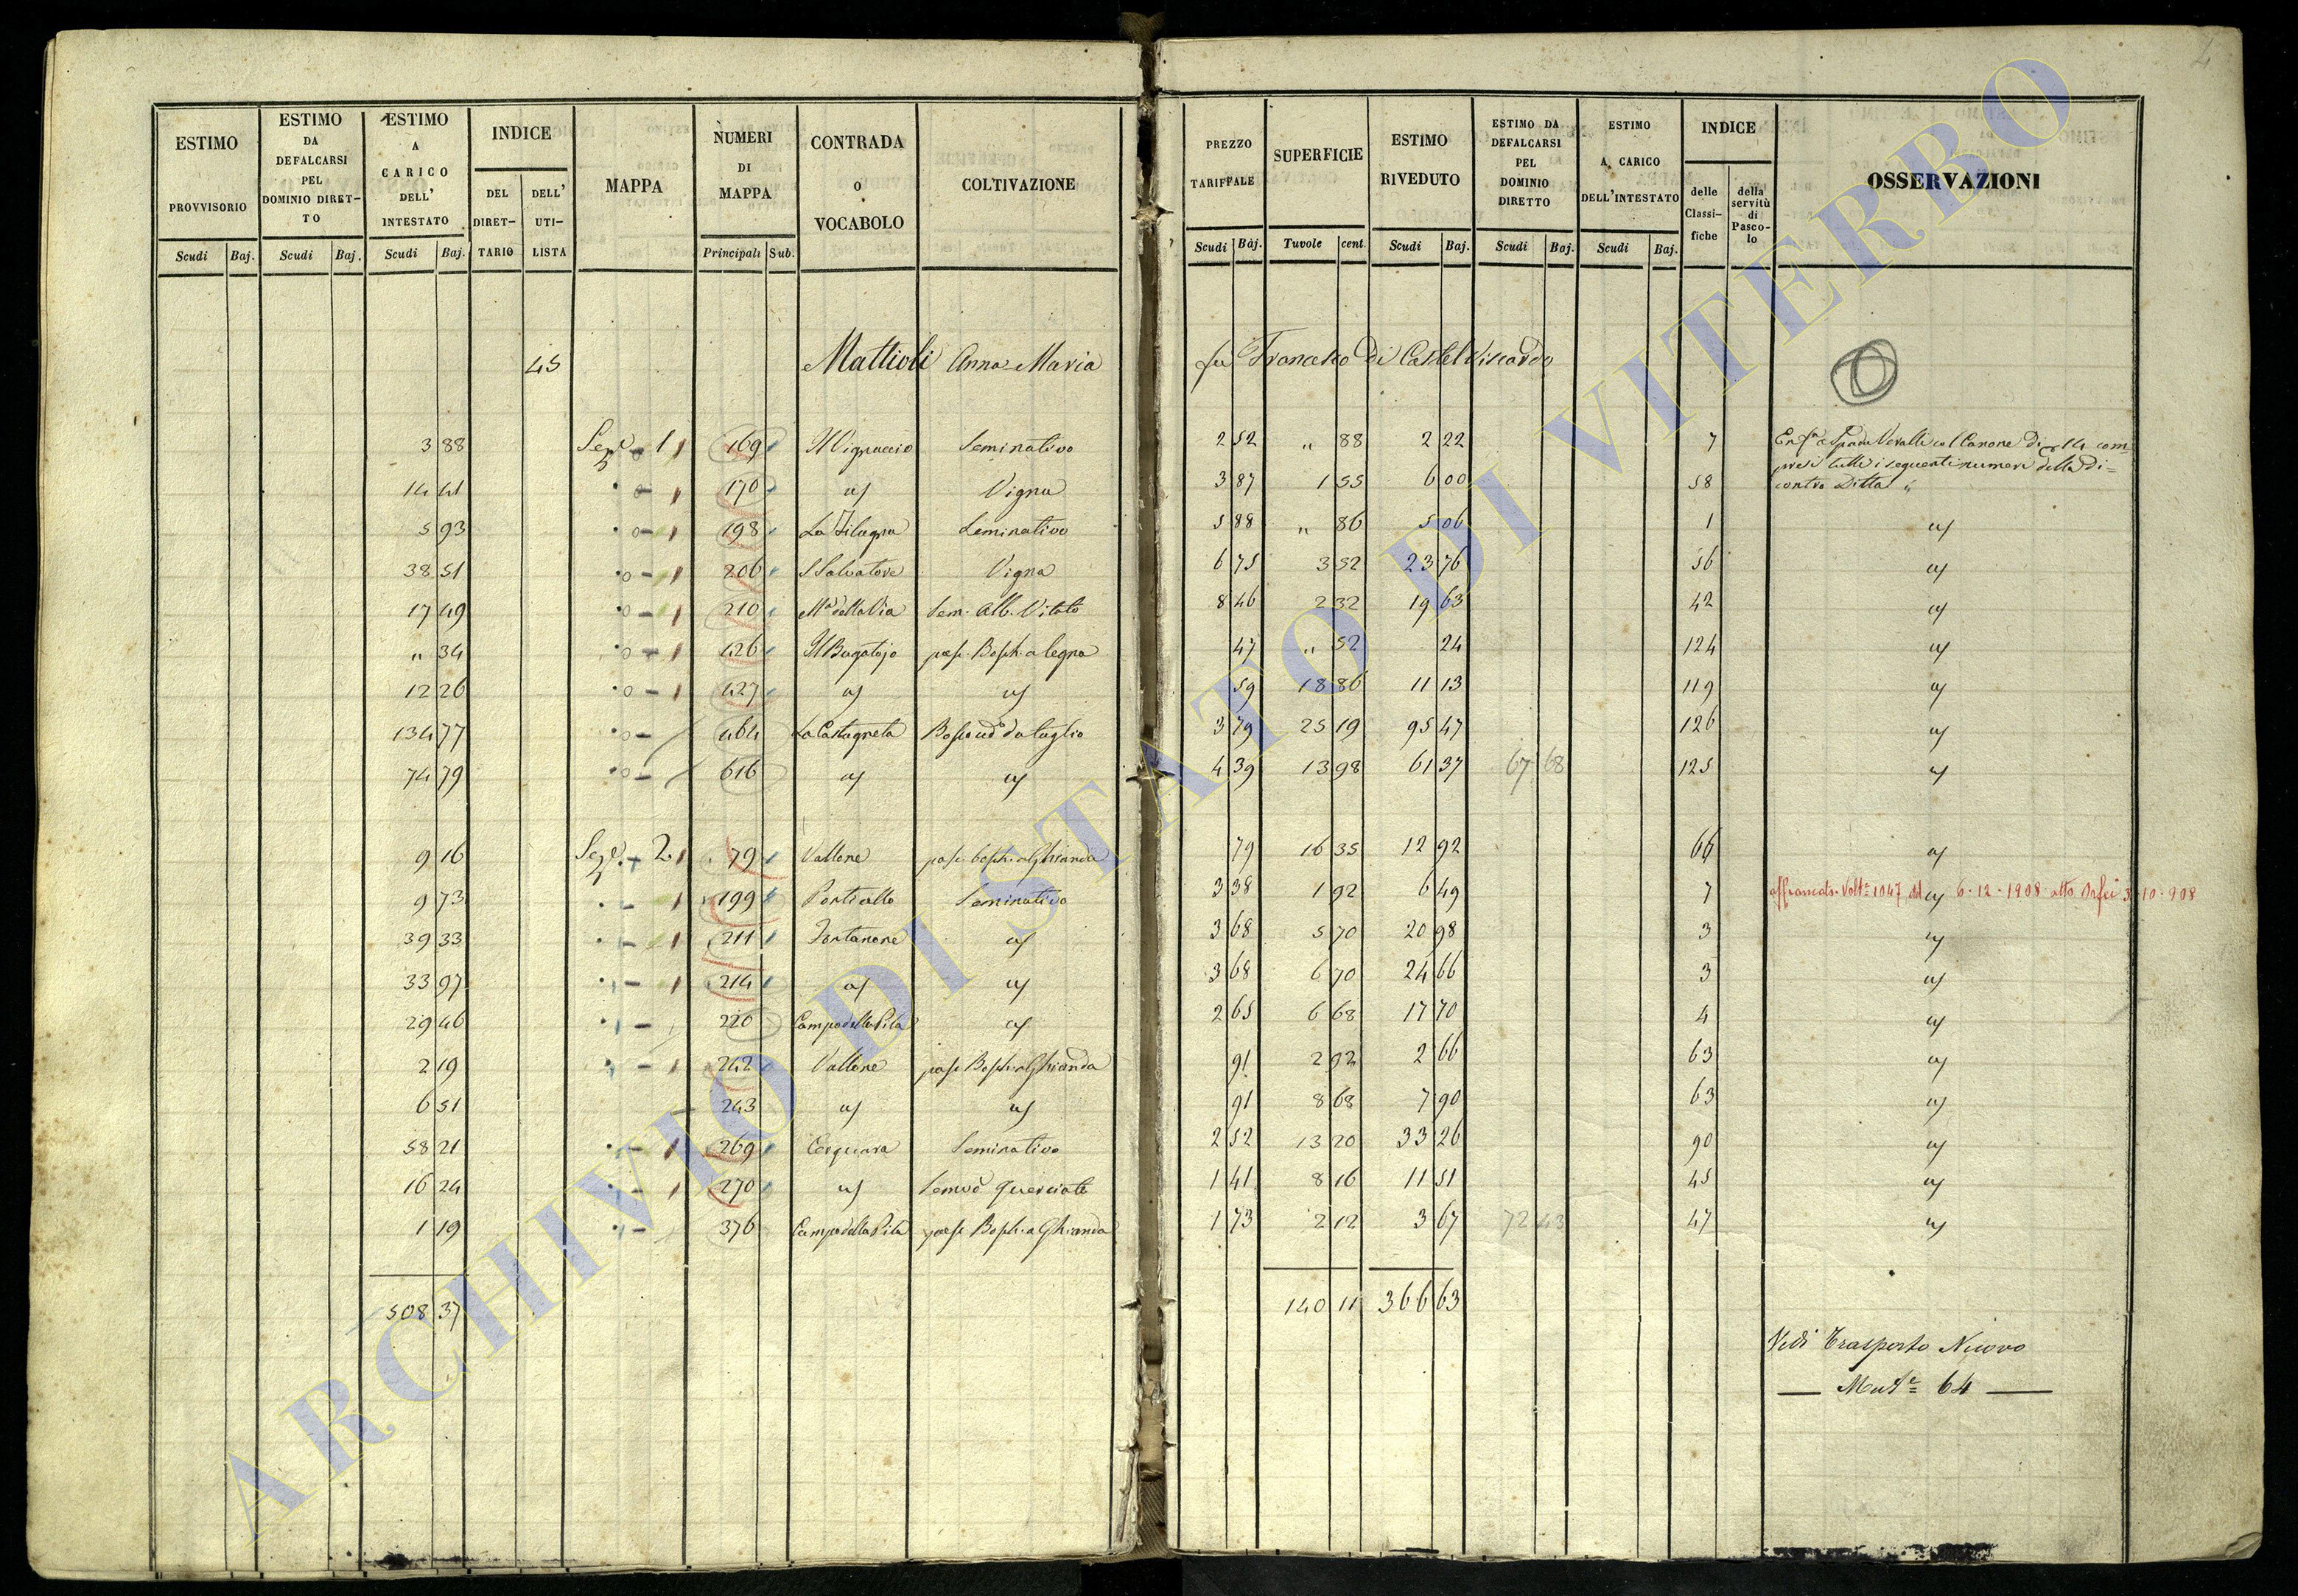 4
ESTIMO PROVVISORIO Scudi Baj.
ESTIMO DA DEFALCARSI PEL DOMINIO DIRET-TO Scudi Baj.
ESTIMO A CARICO DELL' INTESTATO Scudi Baj.
INDICE DEL DIRET-TARIO DELL' UTI-LISTA
MAPPA
NUMERI DI MAPPA Principali Sub.
CONTRADA O VOCABOLO
COLTIVAZIONE
PREZZO TARIFFALE Scudi Baj.
SUPERFICIE Tavole cent.
ESTIMO RIVEDUTO Scudi Baj.
ESTIMO DA DEFALCARSI PEL DOMINIO DIRETTO Scudi Baj.
ESTIMO A CARICO DELL'INTESTATO Scudi Baj.
INDICE delle Classi-fiche della servitù di Pasco-lo
OSSERVAZIONI
45 Mattioli Anna Maria fu Francesco di Castel Viscardo
3 88 Seze 1 169 Il Vignaccio Seminativo 2 52 " 88 2 22 7
14 41 170 a/ Vigna 3 87 1 55 6 00 58
presi tutti i seguenti numeri della di=
contro Ditta "
5 93 198 Seminativo 5 88 " 86 5 06 1 a/
38 51 206 S Salvatore Vigna 6 75 3 52 23 76 56 a/
17 49 210 Ma della Via Sem. Alb. Vitato 8 46 2 32 19 63 42 a/
" 34 426 Il Bagatojo pasc. Bosch. a legna 47 " 52 24 124 a/
12 26 427 a/ a/ 59 18 86 11 13 119 a/
134 77 464 La Castagneta Bosco ced da taglio 3 79 25 19 95 47 126 a/
74 79 616 a/ a/ 4 39 13 98 61 37 67 68 125 a/
9 16 Seze. 2 79 Vallone pasc. bosch. a Ghianda 79 16 35 12 92 66 a/
9 73 199 Seminativo 3 38 1 92 6 49 7 a/ 6-12-1908 3-10-908
39 33 211 Fontanone a/ 3 68 5 70 20 98 3 a/
33 97 214 a/ a/ 3 68 6 70 24 66 3 a/
29 46 220 Campo della Pila a/ 2 65 6 68 17 70 4 a/
2 19 242 Vallone pasc. Bosch. a Ghianda 91 2 92 2 66 63 a/
6 51 243 a/ a/ 91 8 68 7 90 63 a/
58 21 269 Cerquara Seminativo 2 52 13 20 33 26 90 a/
16 24 270 a/ Semvo querciato 1 41 8 16 11 51 45 a/
1 19 376 Campo della Pila pasc. Bosch. a Ghianda 1 73 2 12 3 67 72 43 47 a/
508 37 140 11 366 63
Vedi Trasporto Nuovo
— Mute 64 —
ARCHIVIO DI STATO DI VITERBO